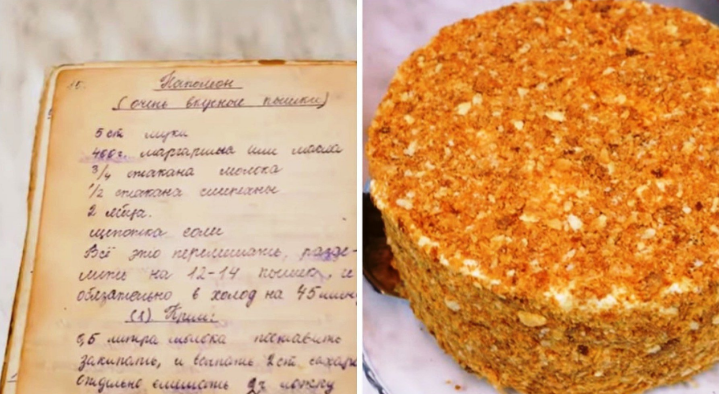 15.
Наполеон
(очень вкусные пышки)
5 ст муки
400 г. маргарина или масла
3/4 стакана молока
1/2 стакана сметаны
2 яйца.
щепотка соли
Всё это перемешать, разде-
лить на 12-14 пышек, и
обязательно в холод на 45 мин
(1) Крем:
0,5 литра молока поставить
закипать, и всыпать 2 ст. сахара
отдельно смешать ложку